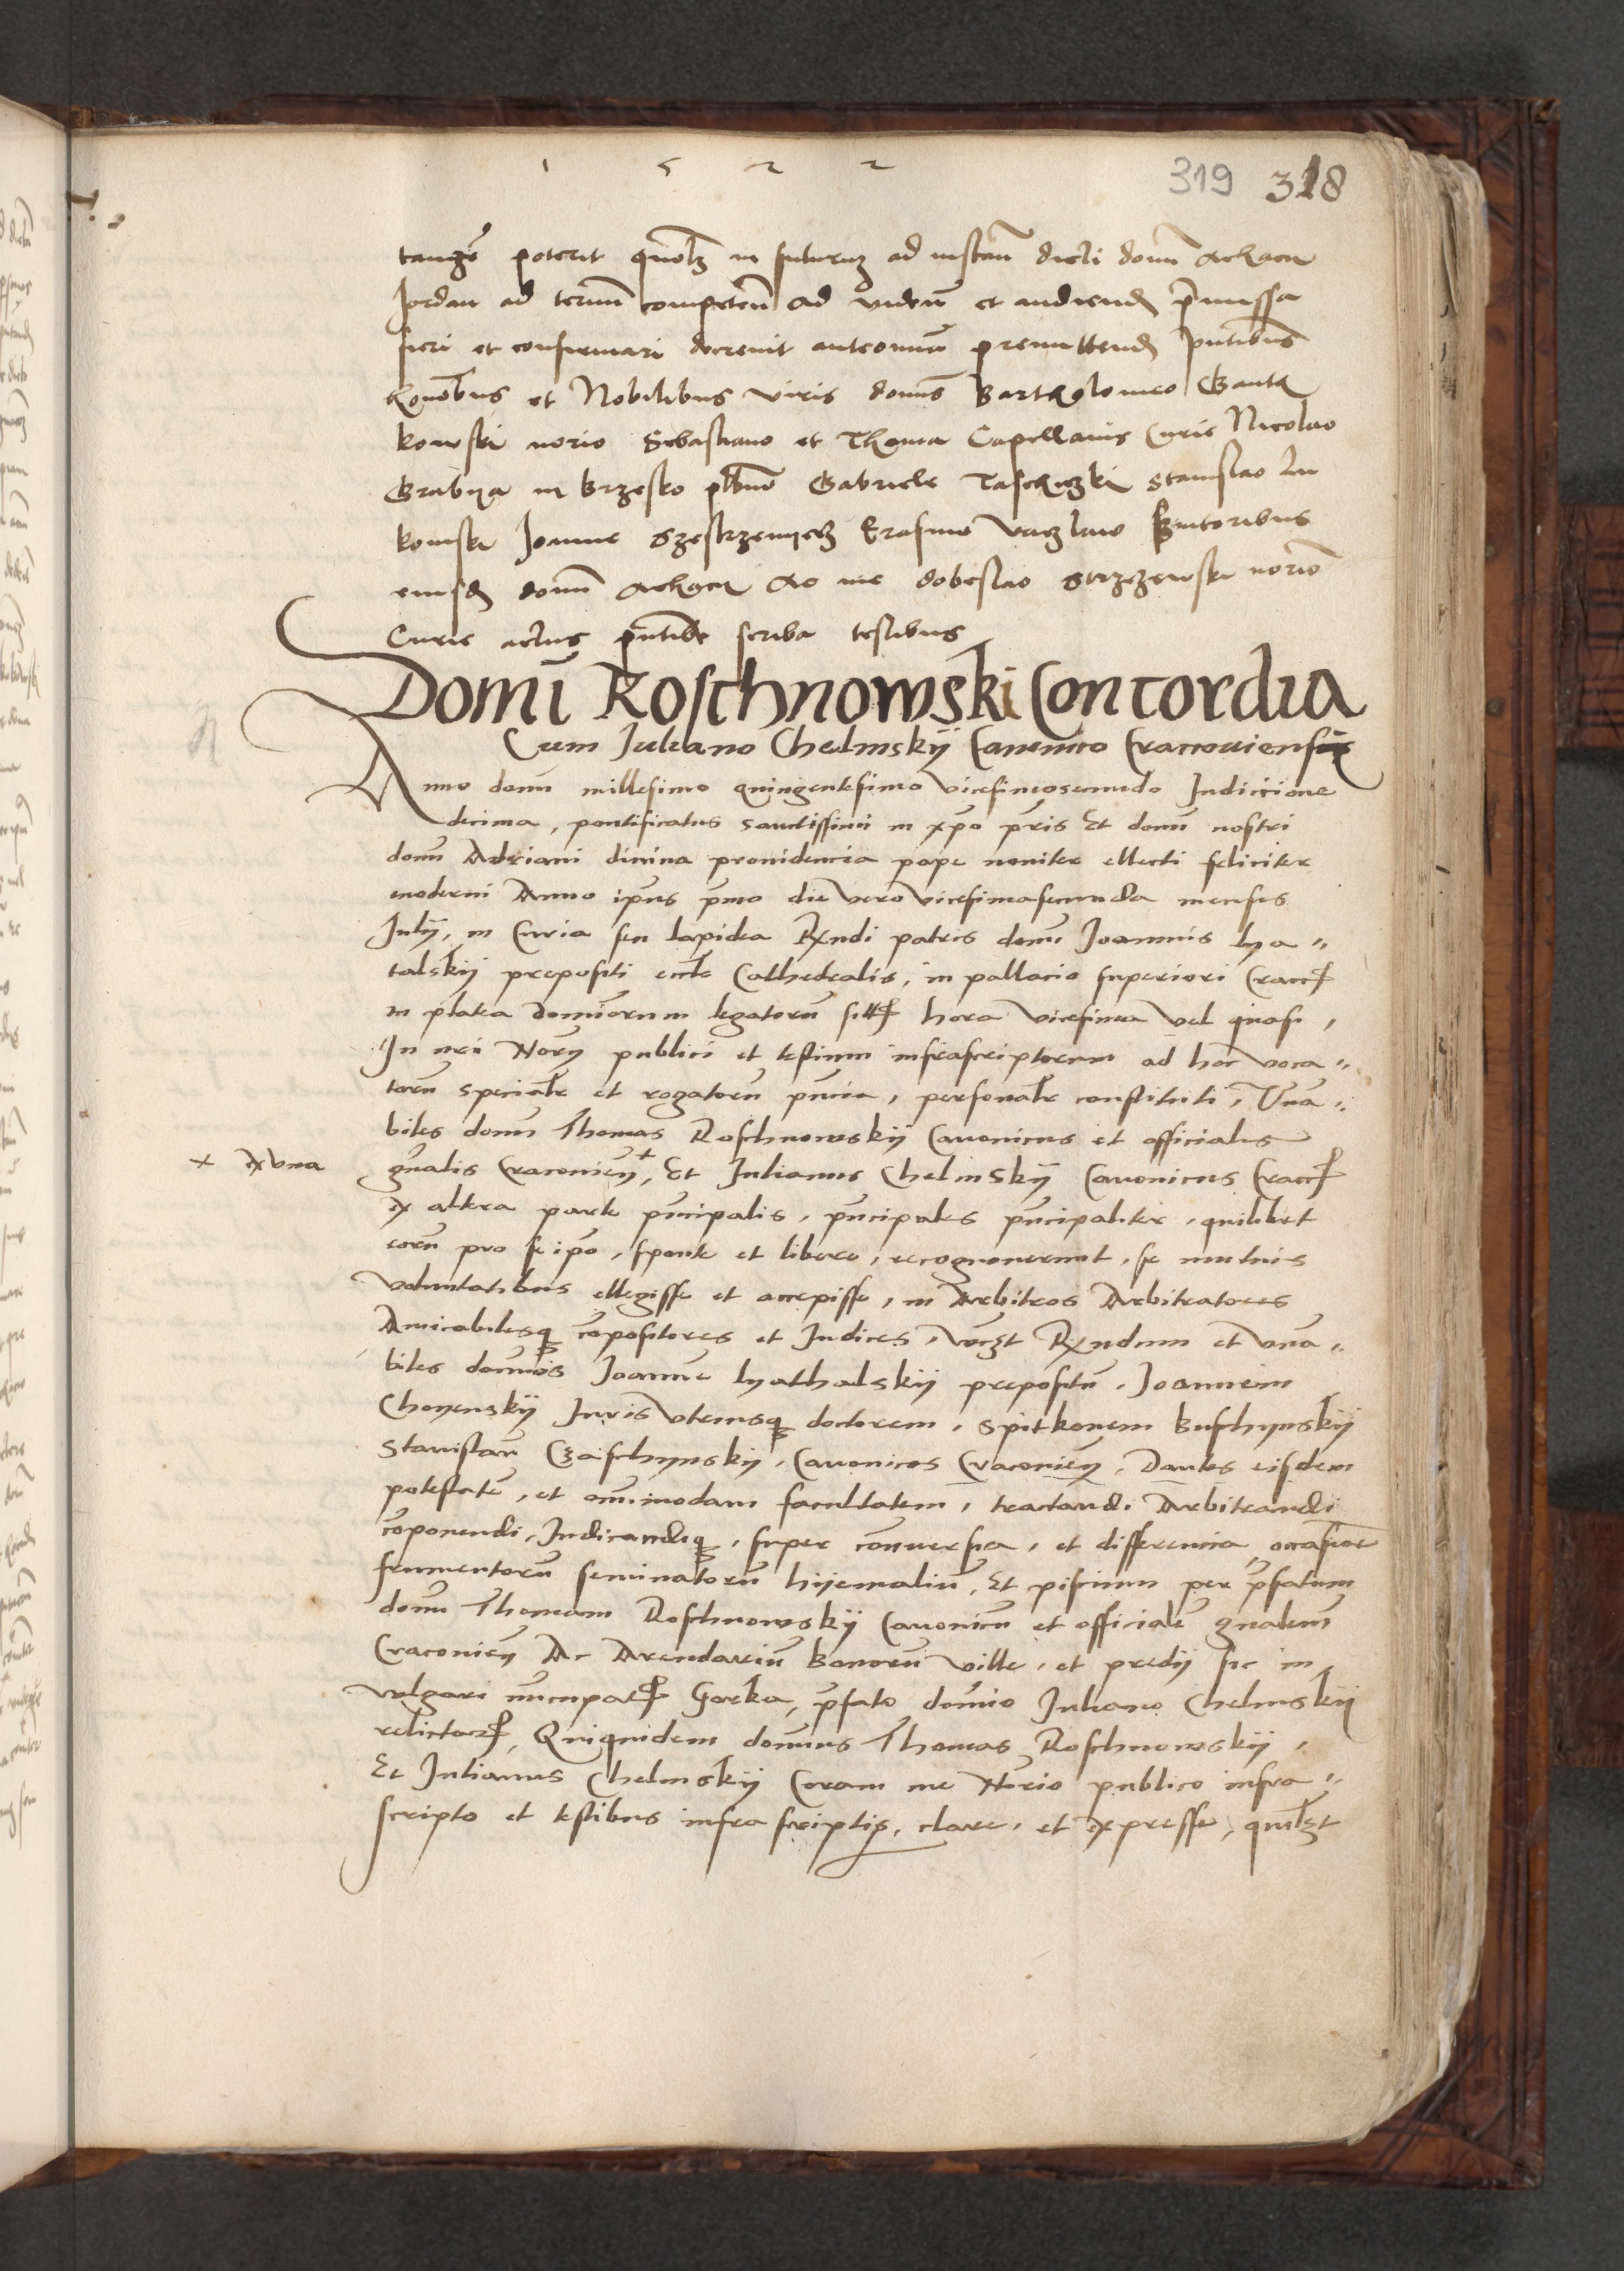 1 5 2 2
319 318
tangẽ poterit quolz in futurũ ad instanñ dicti domĩ Achacii
Jordan ad terminũ competeñ ad videnđ et audienđ premissa
fieri et confirmari decrevit anteomnia premittenđ pntibus
honobus et Nobilibus viris domis Bartholomeo Gantkowski
norio Sebastiano et Thoma Capellanis Curie Nicolao
Grabya in Brzesko plbno Gabriele Taschyczki Stanislao Lu
komski Joanne Szestrzemyecz Erasmo Vaczlaw
eiusđ domĩ Achacii Ac me dobeslao Strzezewski norio
Curie actus pntibus scriba testibus
Domĩ Roschnowski Concordia
Cum Juliano Chelmskÿ Canonico Cracoviensi
Anno domĩ millesimo quingentesimo vicesimosecundo Indiccione
decima, pontificatus sanctissimi in xpo pris Et domĩ nostri
domĩ Adriani divina providencia pape noviter ellecti feliciter
moderni Anno ipius pmo die vero vicesimasecunda mensis
Julÿ, in Curia seu lapidea Rxndi patris domĩ Joannis lya
talskÿ prepositi eccle Cathedralis, in pallacio superiori Cracc
in platea dominorum legatorũ sitt hora vicesima vel quasi,
In mei Norÿ publici et testium infrascriptorum ad hoc voca
torũ specialr et rogatorũ pncia, personalr constituti, Vna
biles domĩ Thomas Roschnowskÿ Canonicus et officialis
x ex vna
gnalis Cracovieñ +, Et Julianus Chelmskÿ Canonicus Cracc
ex altera parte pncipalis, pncipales pncipaliter, quilibet
eorũ pro se ipo, sponte et libere, recognoverunt, se mutuis
voluntatibus ellegisse et accepisse, in Arbitros Arbitratores
Amicabilesq̃ compositores et Judices, vcʒt Rxndum et vna
biles dominos Joannẽ lyathalskÿ prepositũ, Joannem
Choyenskÿ Juris vtriusq̃ doctorem, Spitkonem Buschynskÿ
Stanislaũ Czaschynskÿ, Canonicos Cracovieñ, Dantes eisdem
potestatẽ, et omnimodam facultatem, tractandi Arbitrandi
componendi, Judicandiq̃, super controversia, et differencia, occasione
frumentorũ seminatorũ hÿemaliũ, Et piscium per pfatum
domĩ Thomam Roschnowskÿ Canonicũ et officialẽ gnalem
Cracovieñ Ac Arendariũ bonorũ ville, et predÿ sic in
vulgari nuncupat Gorka, pfato domino Juliano Chelmskÿ
relictor, Quiquidem dominus Thomas Roschnowskÿ,
Et Julianus Chelmskÿ Coram me Norio publico infra
scripto et testibus infra scriptis, clare, et expresse, quilʒt